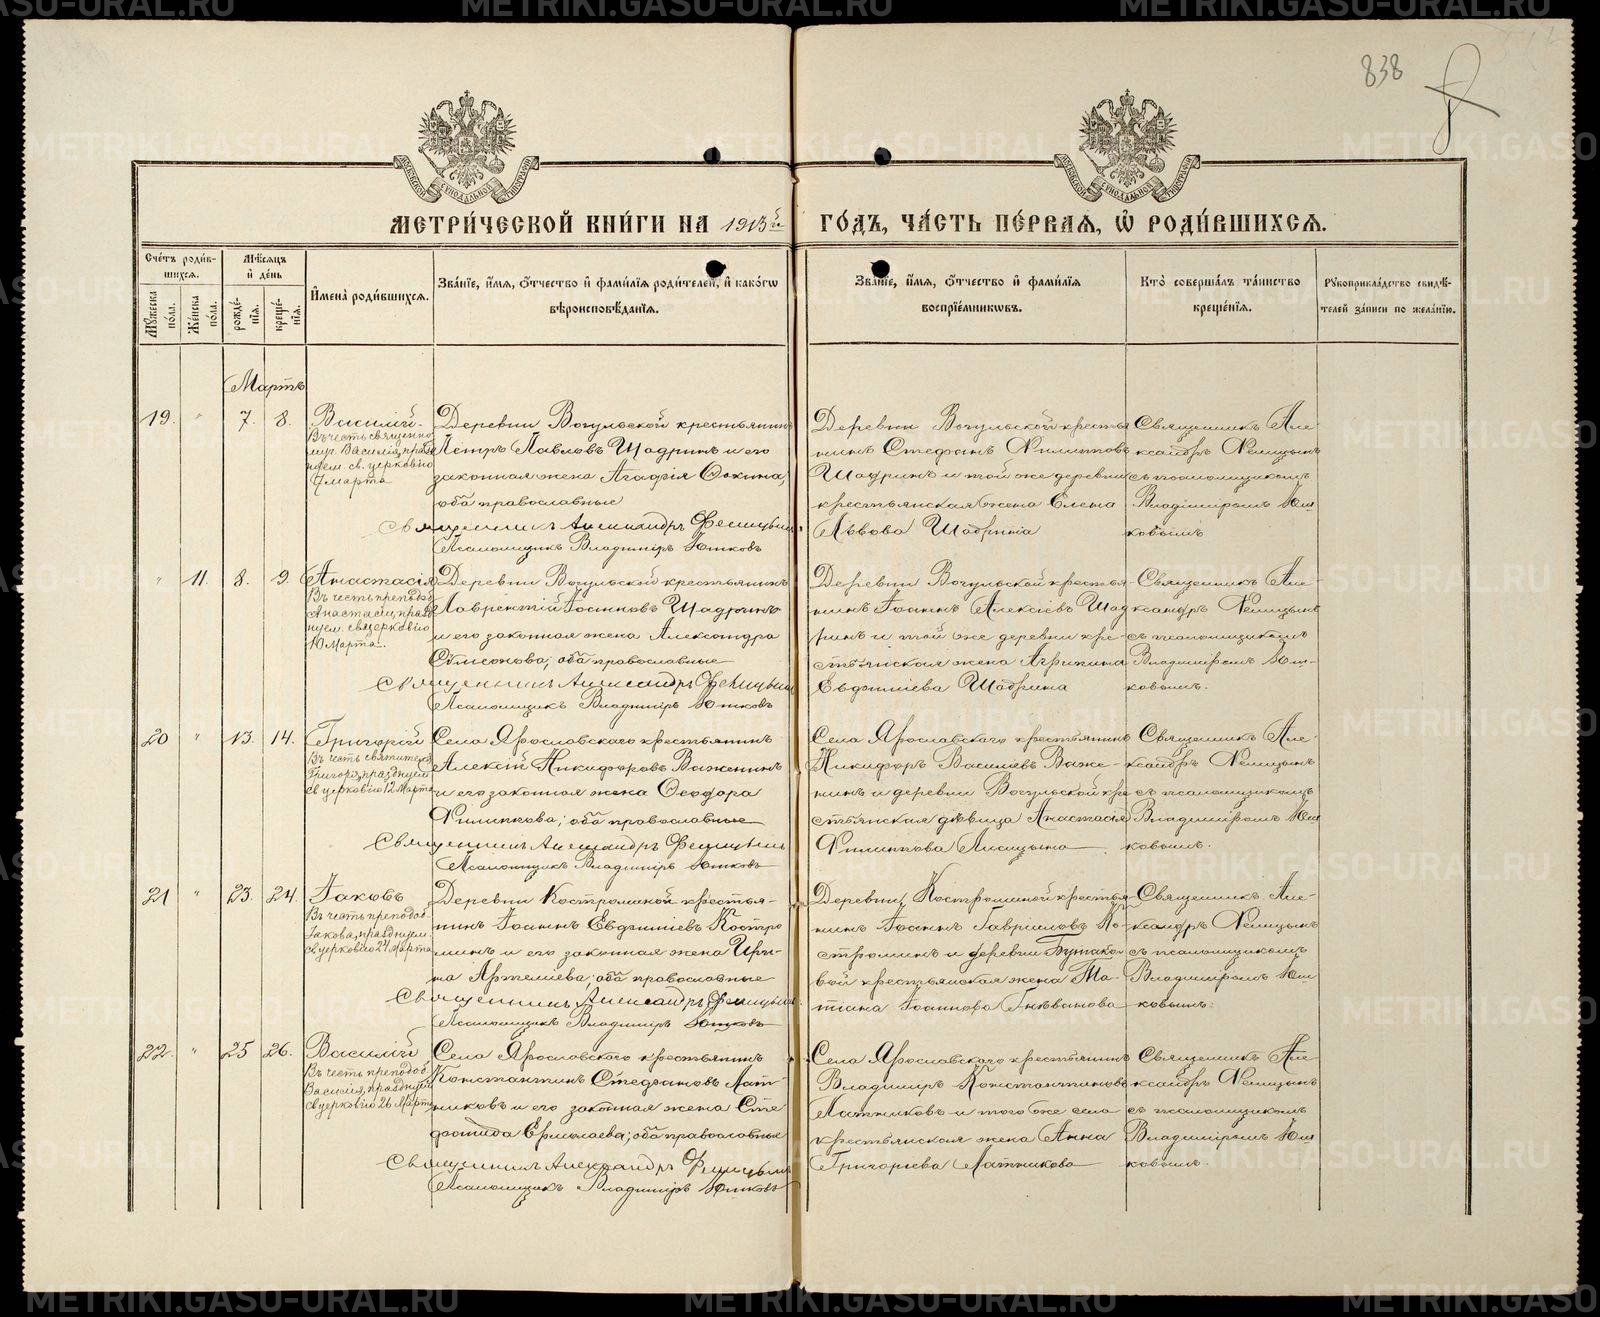 838
МЕТРИ́ЧЕСКОЙ КНИ́ГИ НА 1913й ГО́ДЪ, ЧА́СТЬ ПЕ́РВАЯ, Ѡ РОДИ́ВШИХСЯ.
Сче́тъ роди́в-
шихся.
Мѣ́сяцъ
и҆ де́нь
Мꙋ́жеска по́ла.
Же́нска по́ла.
рожде́-
нїя.
креще́-
нїя.
И҆мена̀ роди́вшихся.
Зва́нїе, и҆́мя, ѻ҆́тчество и҆ фами́лїя роди́телей, и҆ како́гѡ
вѣроисповѣ́данїя.
Зва́нїе, и҆́мя, ѻ҆́тчество и҆ фами́лїя
воспрїе́мникѡвъ.
Кто̀ соверша́лъ та́инство
креще́нїя.
Рꙋкоприкла́дство свидѣ́-
телей за́писи по жела́нїю.
Мартъ
19. " 7. 8.
Василій.
Въ честь священно
муч. Василія, празд
нуем. св. церковію
7 марта
Деревни Вогульской крестьянинъ
Петръ Павловъ Шадринъ и его
законная жена Агафія Фокина,
оба православные
Священникъ Александръ Феницынъ
Псаломщикъ Владиміръ Юшковъ
Деревни Вогульской крестья
нинъ Стефанъ Филиповъ
Шадринъ и той же деревни
крестьянская жена Елена
Львова Шадрина
Священникъ Але-
ксандръ Феницынъ
съ псаломщикомъ
Владиміромъ Юш
ковымъ
" 11. 8. 9.
Анастасія
Въ честь преподоб
Анастасіи, празд
нуем. св. церковію
10 Марта.
Деревни Вогульской крестьянинъ
Лаврентій Іоанновъ Шадринъ
и его законная жена Александра
Самсонова; оба православные
Священникъ Александръ Феницынъ
Псаломщикъ Владиміръ Юшковъ
Деревни Вогульской крестья-
нинъ Іоаннъ Алексіевъ Шад
ринъ и той же деревни кре-
стьянская жена Агрипина
Евфиміева Шадрина
Священникъ Але-
ксандръ Феницынъ
съ псаломщикомъ
Владиміромъ Юш-
ковымъ.
20 " 13. 14.
Григорій
Въ честь святителя
Григорія, празднуем.
св церковію 12 Марта
Села Ярославскаго крестьянинъ
Алексій Никифоровъ Важенинъ
и его законная жена Феодора
Филиппова; оба православные
Священникъ Александръ Феницынъ
Псаломщикъ Владиміръ Юшковъ
Села Ярославскаго крестьянинъ
Никифоръ Василіевъ Важе-
нинъ и деревни Вогульской кре
стьянская дѣвица Анастасія
Филиппова Лисицына
Священникъ Але-
ксандръ Феницынъ
съ псаломщикомъ
Владиміромъ Юш
ковымъ.
21 " 23. 24.
Іаковъ
Въ честь преподоб.
Іакова, празднуем.
св церковію 24 Марта
Деревни Костроминой крестья-
нинъ Іоаннъ Евфиміевъ Костро
минъ и его законная жена Ири-
на Артеміева; оба православные
Священникъ Александръ Феницынъ
Псаломщикъ Владиміръ Юшковъ
Деревни Костроминой крестья-
нинъ Іоаннъ Гавриловъ Ко-
строминъ и деревни Бутако-
вой крестьянская жена Та-
тіана Іоаннова Гнѣванова
Священникъ Але-
ксандръ Феницынъ
съ псаломщикомъ
Владиміромъ Юш-
ковымъ.
22. " 25 26.
Василій
Въ честь преподоб.
Василія, празднуем
св церковію 26 Марта
Села Ярославскаго крестьянинъ
Константинъ Стефановъ Лат
никовъ и его законная жена Сте
фанида Ермолаева; оба православные
Священникъ Александръ Феницынъ
Псаломщикъ Владиміръ Юшковъ
Села Ярославскаго крестьянинъ
Владиміръ Константиновъ
Латниковъ и того же села
крестьянская жена Анна
Григоріева Латникова
Священникъ Але-
ксандръ Феницынъ
съ псаломщикомъ
Владиміромъ Юш
ковымъ.
METRIKI.GASO-URAL.RU